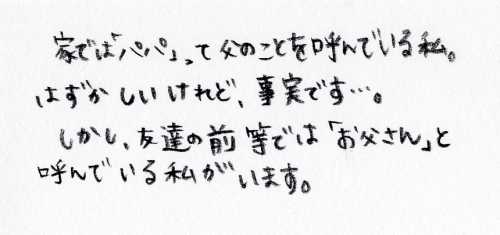 家では「パパ」って父のことを呼んでいる私。
はずかしいけれど、事実です…。
しかし、友達の前等では「お父さん」と
呼んでいる私がいます。